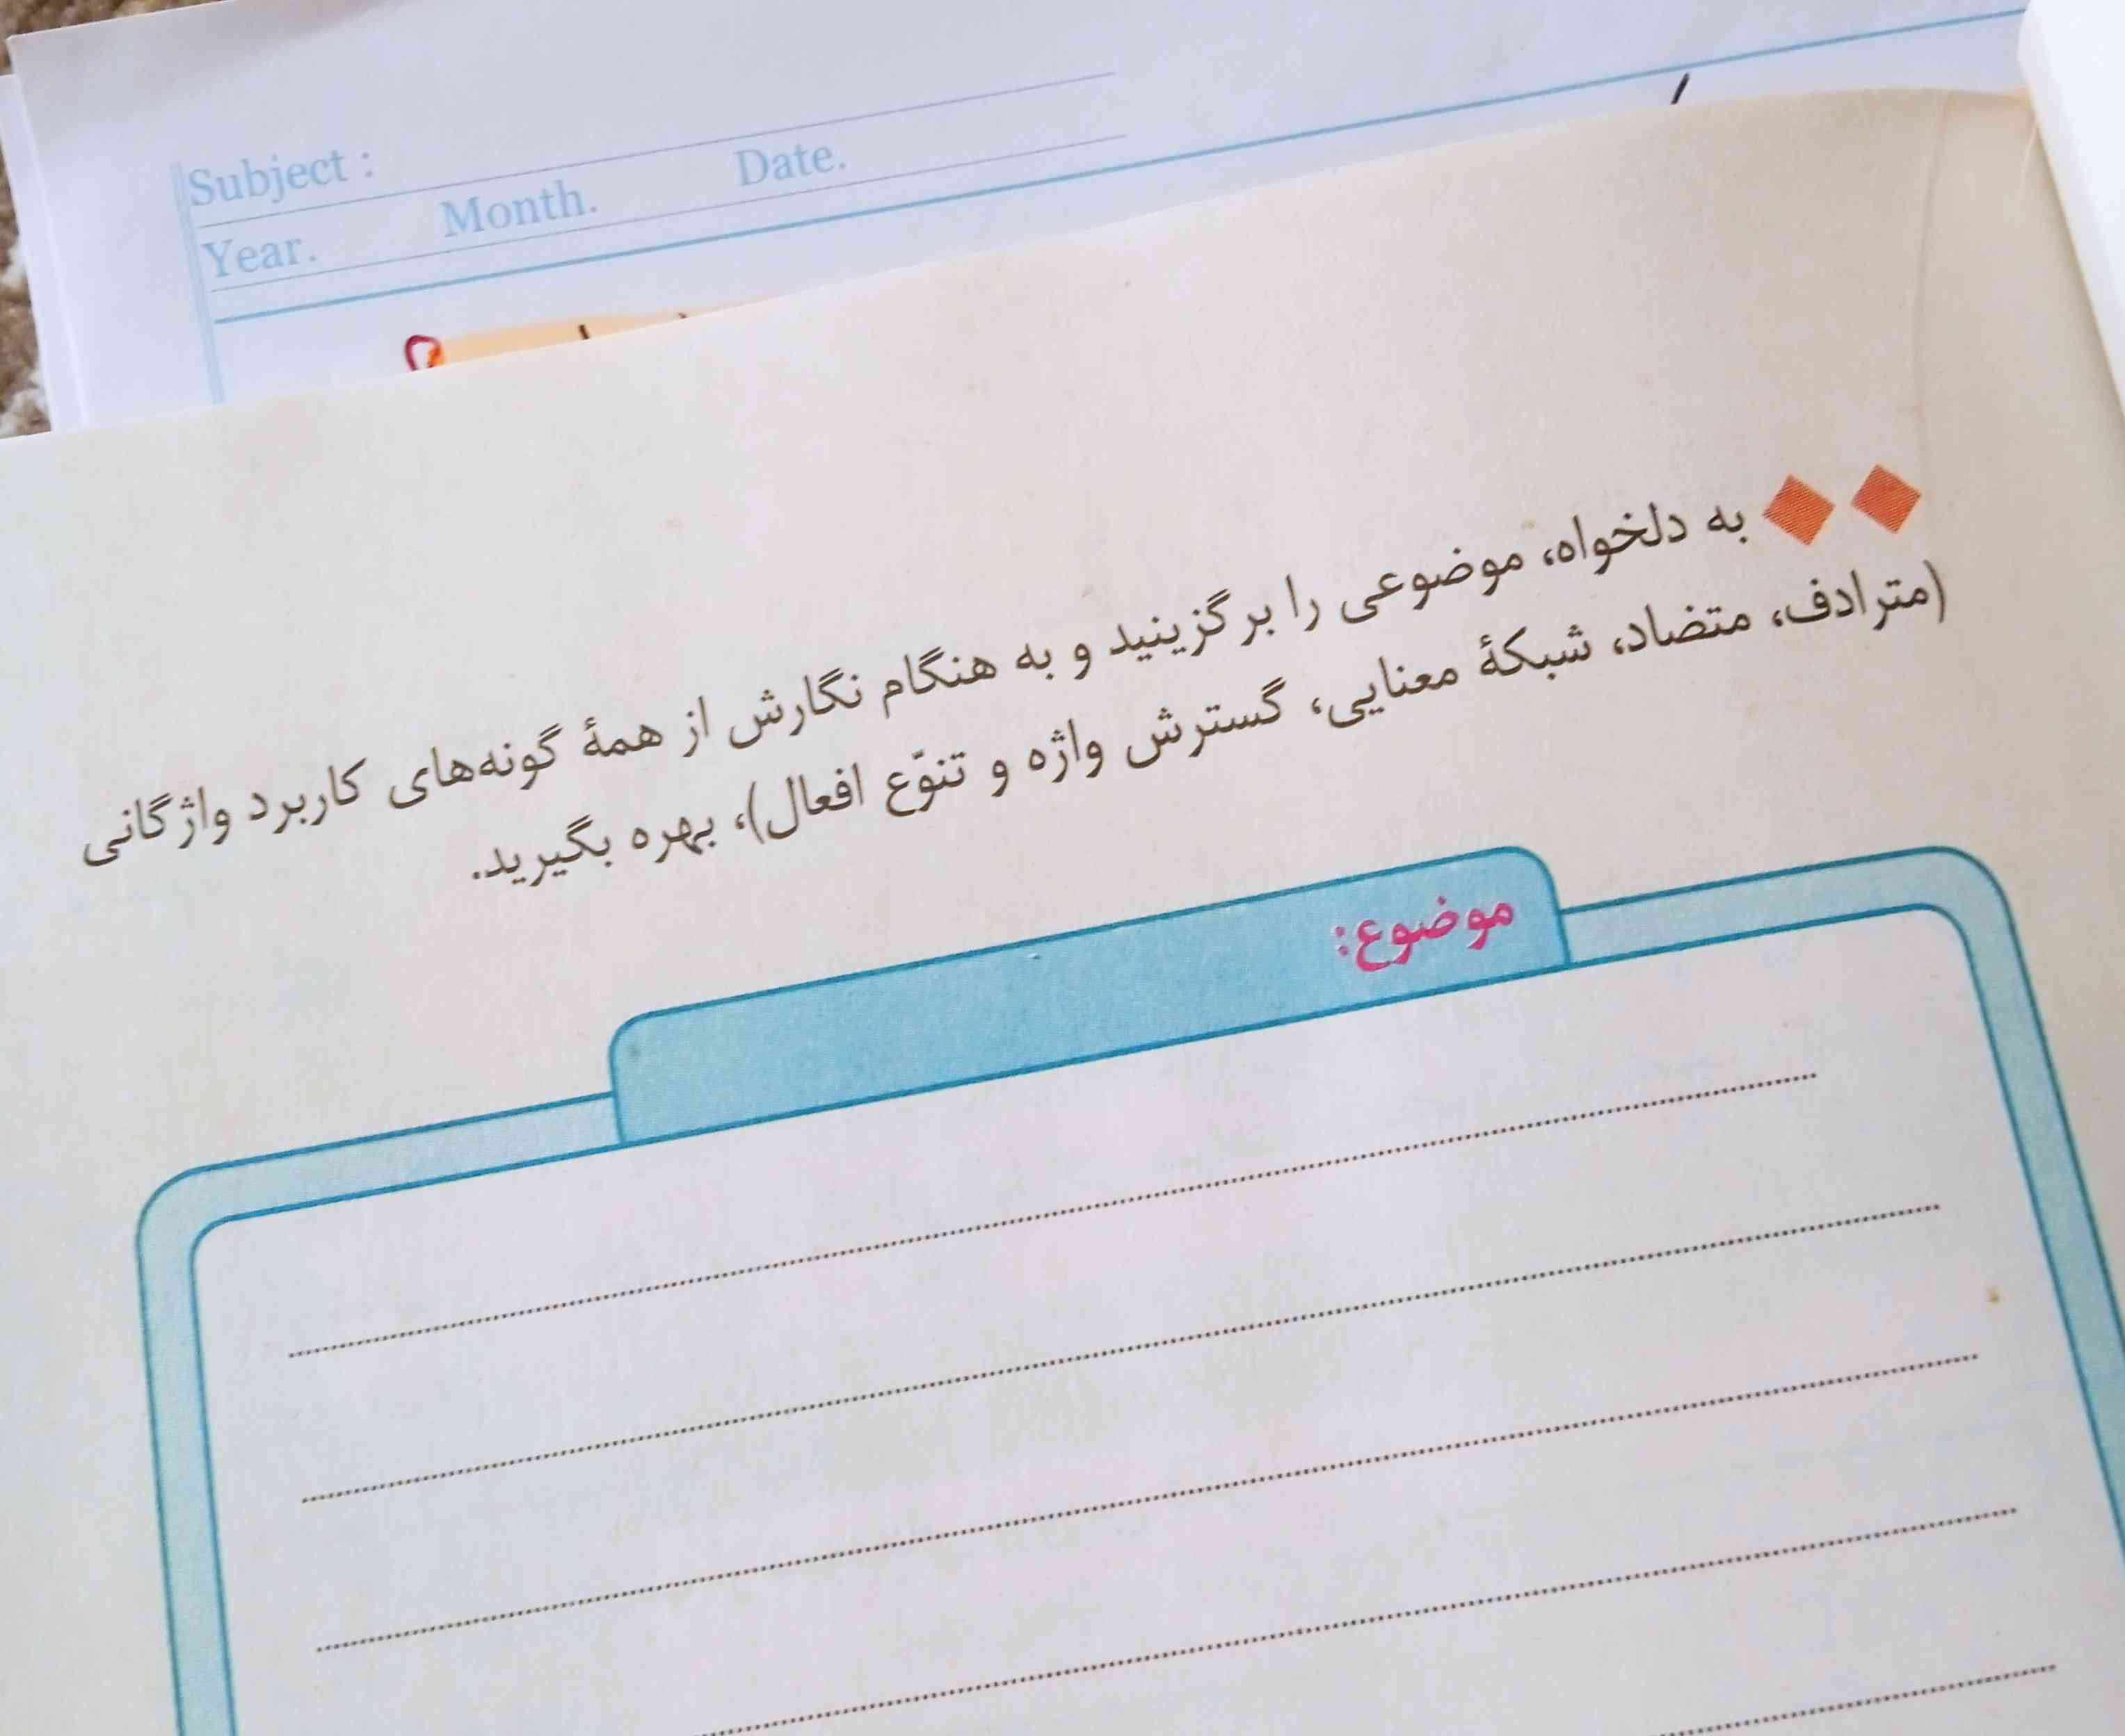 Subject :
Year. Month. Date.
به دلخواه، موضوعی را برگزینید و به هنگام نگارش از همهٔ گونه‌های کاربرد واژگانی
(مترادف، متضاد، شبکهٔ معنایی، گسترش واژه و تنوّع افعال)، بهره بگیرید.
موضوع: